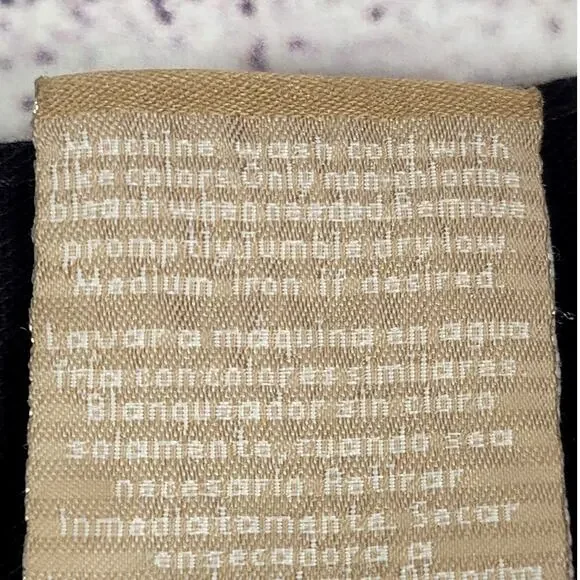 Machine wash cold with
like colors. Only non-chlorine
bleach when needed. Remove
promptly. Tumble dry low.
Medium iron if desired.
Lavar a maquina en agua
fria con colores similares
Blanqueador sin cloro
solamente, cuando sea
necesario. Retirar
inmediatamente. Secar
en secadora a